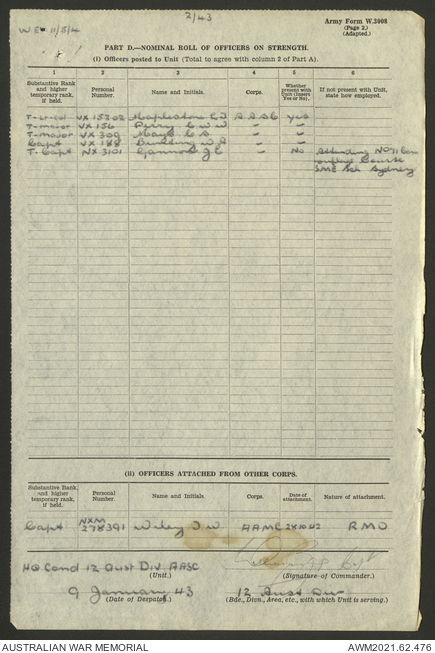 2/43
W.E. 11/5/4
Army Form W.3008
(Page 2.)
(Adapted.)
PART D.—NOMINAL ROLL OF OFFICERS ON STRENGTH.
(i) Officers posted to Unit (Total to agree with column 2 of Part A).
1 2 3 4 5 6
Substantive Rank and higher temporary rank, if held. Personal Number. Name and Initials. Corps. Whether present with Unit (Insert Yes or No). If not present with Unit, state how employed.
T-Lt-Col VX 15302 Maplestone C J AASC yes
T-major VX 156 Perry C W W " "
T-major VX 309 Mays C S " "
Capt VX 188 W R " "
T. Capt NX 3101 Gannon J C " No Attending No 71 Gen
Course
SME Sch Sydney
(ii) OFFICERS ATTACHED FROM OTHER CORPS.
Substantive Rank, and higher temporary rank, if held. Personal Number. Name and Initials. Corps. Date of attachment. Nature of attachment.
Capt NXM 278391 Wiley J W AAMC 28 10 42 RMO
HQ Comd 12 Aust Div AASC
(Unit.)
Capt
(Signature of Commander.)
9 January 43
(Date of Despatch.)
12 Aust Div
(Bde., Divn., Area, etc., with which Unit is serving.)
AUSTRALIAN WAR MEMORIAL
AWM2021.62.476